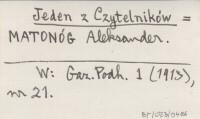 Jeden z Czytelników =
MATONÓG Aleksander.
W: Gaz. Podh. 1 (1913),
nr 21.